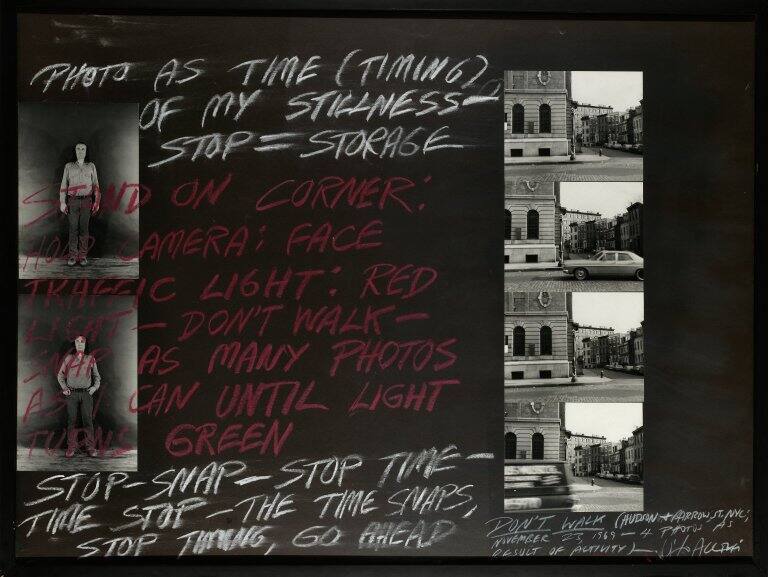 PHOTO AS TIME (TIMING)
OF MY STILLNESS—
STOP = STORAGE
STAND ON CORNER:
HOLD CAMERA; FACE
TRAFFIC LIGHT: RED
LIGHT — DON'T WALK —
SNAP AS MANY PHOTOS
AS I CAN UNTIL LIGHT
TURNS GREEN
STOP-SNAP — STOP TIME —
TIME STOP — THE TIME SNAPS,
STOP TIMING, GO AHEAD
DON'T WALK (HUDSON + BARROW ST, NYC;
NOVEMBER 23, 1969 — 4 PHOTOS AS
RESULT OF ACTIVITY) — Vito Acconci